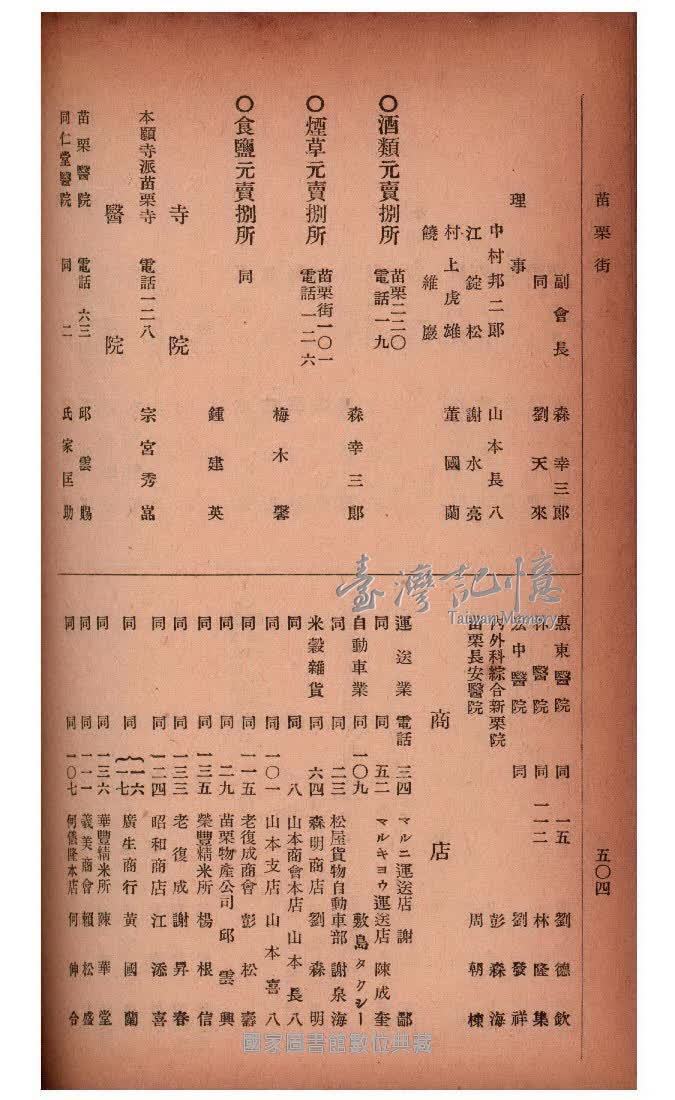 苗栗街
五〇四
副會長 森幸三郎
同 劉天來
理事
中村邦二郎 山本長八
江錠松 謝水亮
村上虎雄 董國蘭
饒維巖
〇酒類元賣捌所 苗栗二二〇 電話一九 森幸三郎
〇煙草元賣捌所 苗栗街一〇一 電話一二六 梅木馨
〇食鹽元賣捌所 同 鍾建英
寺院
本願寺派苗栗寺 電話一二八 宗宮秀嵓
醫院
苗栗醫院 電話六三 邱雲賜
同仁堂醫院 同二 氏家匡助
惠東醫院 同一五 劉德欽
林醫院 同一一二 林隆集
宏中醫院 同 劉發祥
內外科綜合新栗院 彭森海
苗栗長安醫院 周朝棟
商店
運送業 電話三四 マルニ運送店 謝鄙
同 同五二 マルキヨウ運送店 陳成奎
自動車業 同一〇九 敷島タクシー
同 同二三 松屋貨物自動車部 謝泉海
米穀雜貨 同六四 森明商店 劉森明
同 同八 山本商會本店 山本長八
同 同一〇一 山本支店 山本喜八
同 同一一五 老復成商會 彭松壽
同 同二九 苗栗物產公司 邱雲興
同 同一三五 榮豐精米所 楊根信
同 同一三三 老復成 謝昇春
同 同一二四 昭和商店 江添喜
同 同一六 一七 廣生商行 黃國蘭
同 同一三六 華豐精米所 陳華堂
同 同一一一 義美商會 賴松盛
同 同一〇七 何儀隆本店 何伸合
臺灣記憶
Taiwan Memory
國家圖書館數位典藏